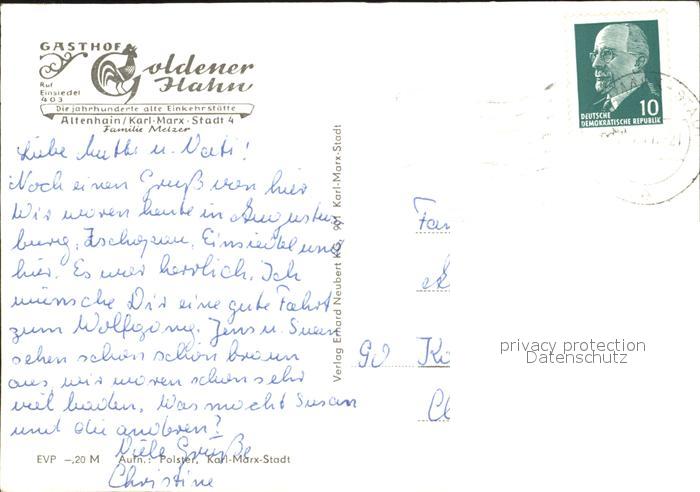 GASTHOF
Goldener
Hahn
Ruf
Einsiedel
403
Die jahrhunderte alte Einkehrstätte
Altenhain/Karl-Marx-Stadt 4
Familie Melzer
Liebe Mutti u. Vati!
Noch einen Gruß von hier
Wir waren heute in Augustus
burg, Zschopau, Einsiedel und
hier. Es war herrlich. Ich
wünsche Dir eine gute Fahrt
zum Wolfgang. Jens u. Susan
sehen schon schön braun
aus, wir waren schon sehr
viel baden. Was macht Susan
und die anderen?
Viele Grüße
Christine
EVP –,20 M Aufn.: Polster, Karl-Marx-Stadt
Verlag Erhard Neubert KG, 901 Karl-Marx-Stadt
10
DEUTSCHE
DEMOKRATISCHE REPUBLIK
Fam
90 Ka
privacy protection
Datenschutz